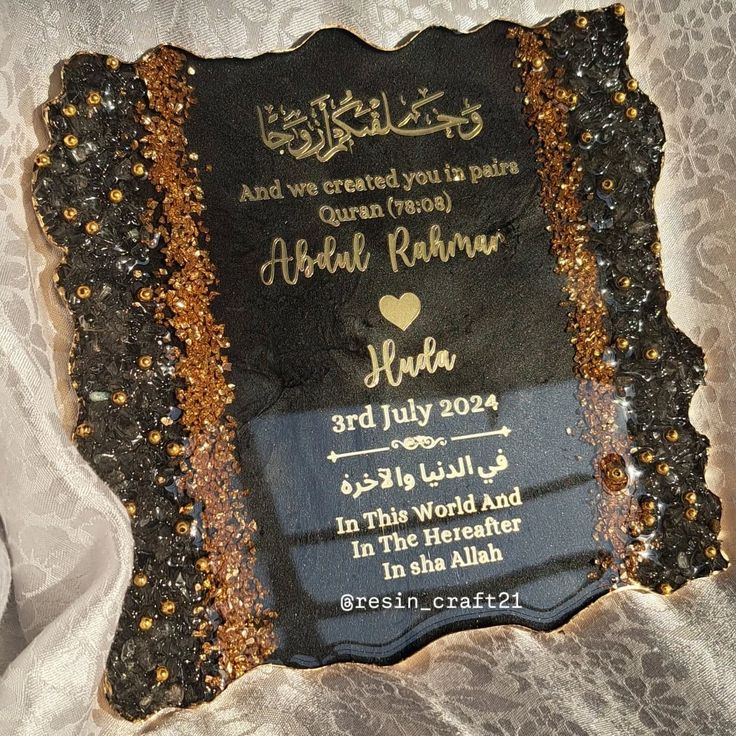 وَخَلَقْنَٰكُمْ أَزْوَٰجًا
And we created you in pairs
Quran (78:08)
Abdul Rahman
Huda
3rd July 2024
في الدنيا والآخرة
In This World And
In The Hereafter
In sha Allah
@resin_craft21